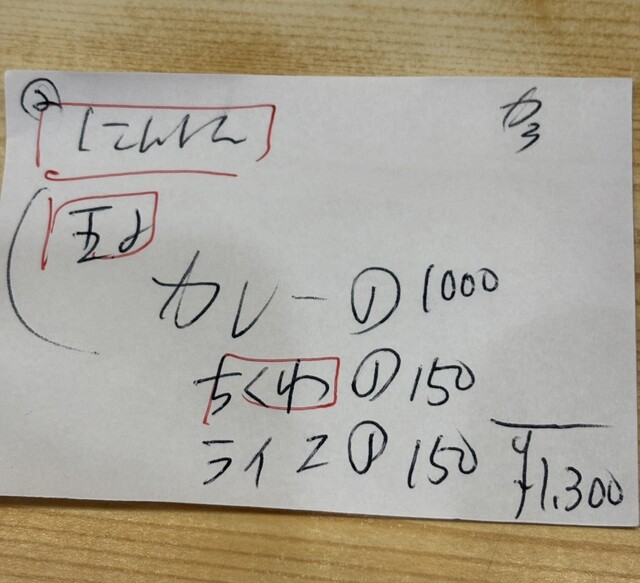 ②
カ3
カレー ① 1000
ちくわ ① 150
ライス ① 150
¥1,300